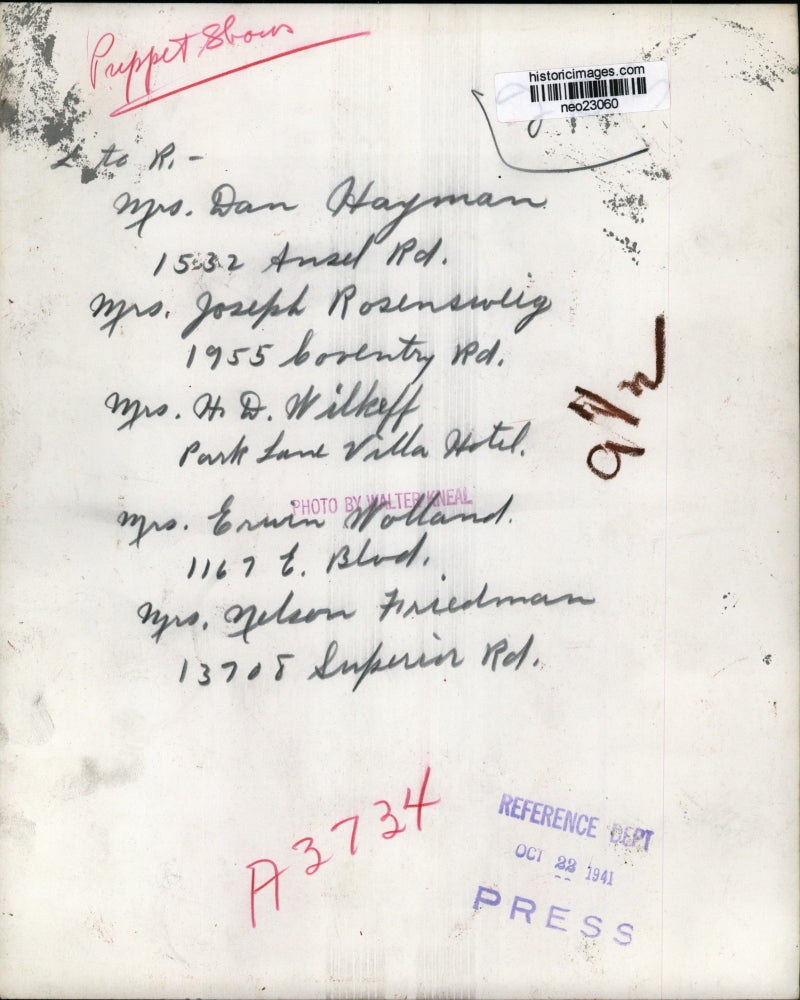 Puppet Shows
historicimages.com
neo23060
L to R. -
Mrs. Dan Hayman
1532 Ansel Rd.
Mrs. Joseph Rosensweig
1955 Coventry Rd.
Mrs. H. D. Wilkeff
Park Lane Villa Hotel.
PHOTO BY WALTER KNEAL
Mrs. Erwin Wolland.
1167 E. Blvd.
Mrs. Nelson Friedman
13708 Superior Rd.
A3734
REFERENCE DEPT
OCT 22 1941
PRESS